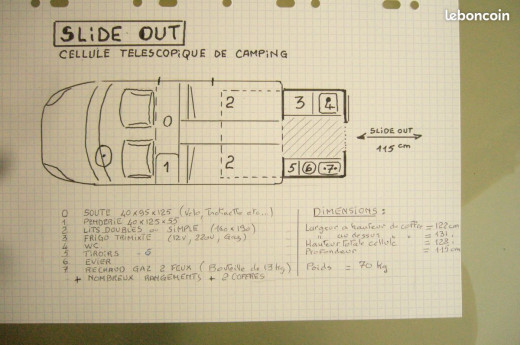 leboncoin
SLIDE OUT
CELLULE TELESCOPIQUE DE CAMPING
0
1
2
2
3
4
5
6
7
SLIDE OUT
115 cm
0 SOUTE 40x95x125 (Velo, Trotinette etc...)
1 PENDERIE 40x125x55
2 LITS DOUBLES ou SIMPLE (190x130)
3 FRIGO TRIMIXTE (12v, 220v, Gaz)
4 WC
5 TIROIRS - 6
6 EVIER
7 RECHAUD GAZ 2 FEUX (Bouteille de 13 kg)
+ NOMBREUX RANGEMENTS + 2 COFFRES
DIMENSIONS :
Largeur a hauteur du coffre = 122 cm
" au dessus " " = 131
Hauteur totale cellule = 128
Profondeur = 115 cm
Poids = 70 kg